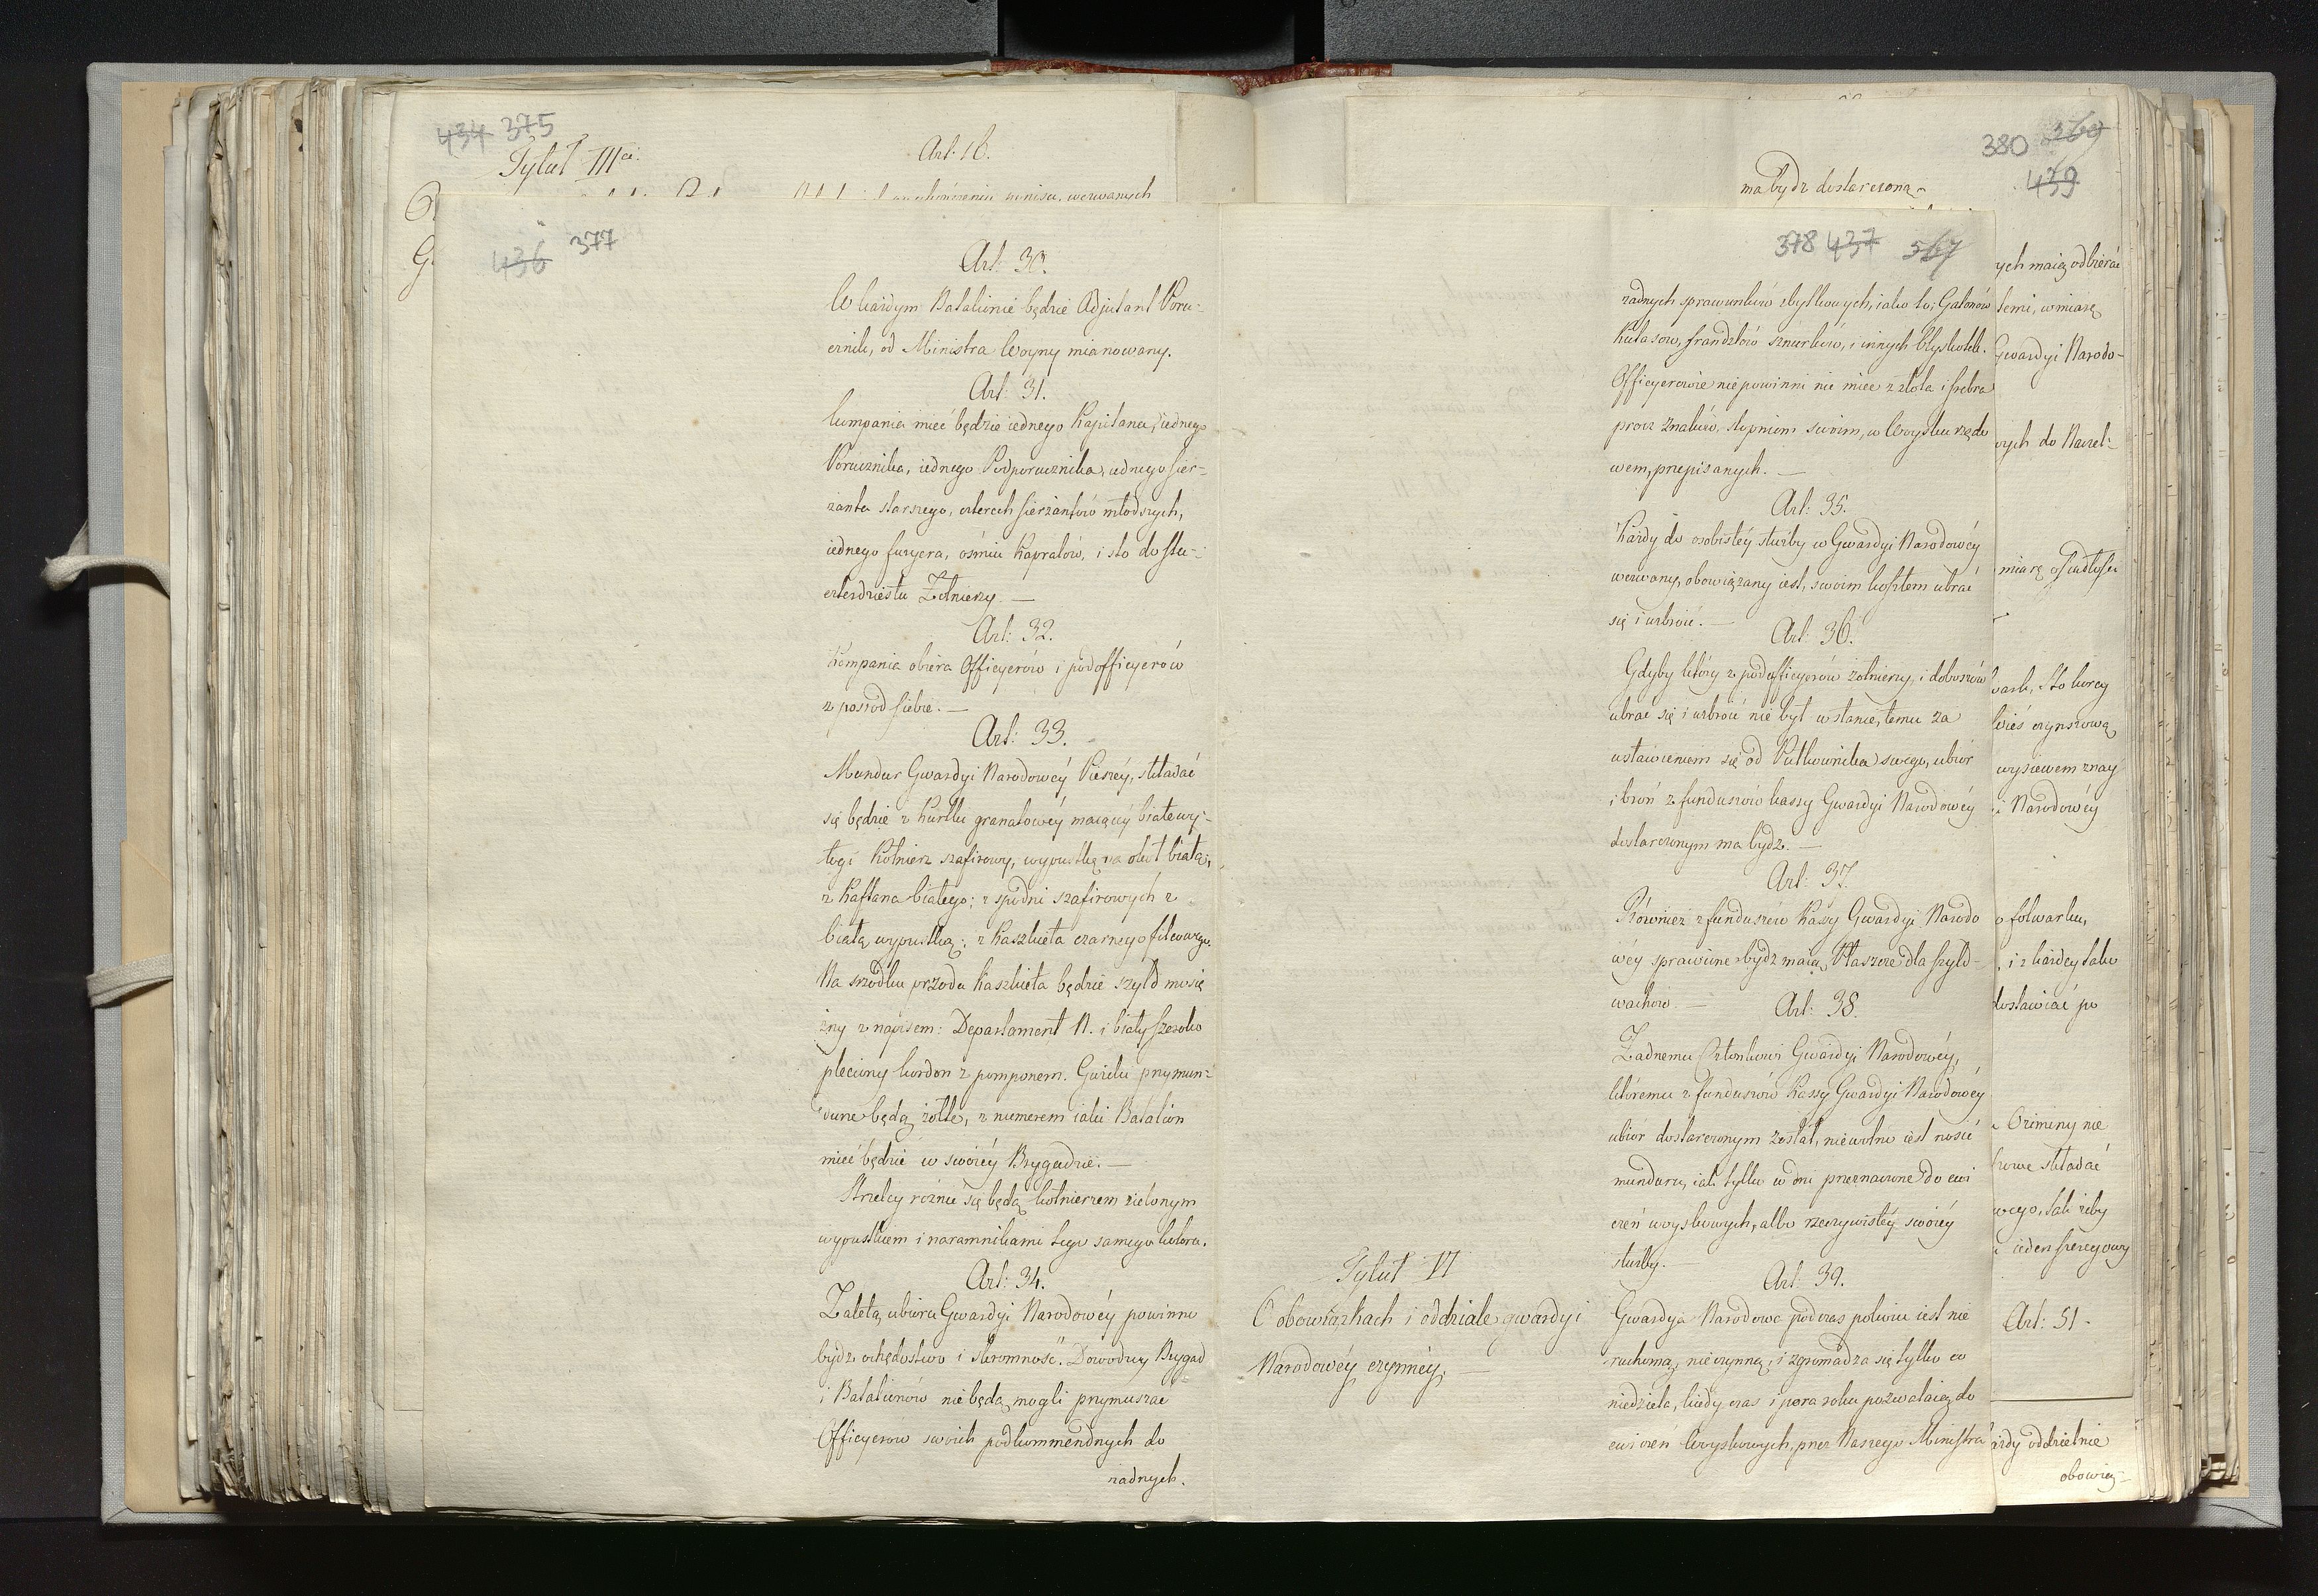 434 375
Tytuł III.ci
Art. 16.
436 377
Art: 30.
W każdym Batalionie będzie Adjutant Poru-
cznik, od Ministra Woyny mianowany.
Art: 31.
Kompania mieć będzie iednego Kapitana, iednego
Porucznika, iednego Podporucznika, iednego sier-
żanta starszego, czterech sierżantów młodszych,
iednego furyera, ośmiu Kapralów, i sto do stu
czterdziestu Żołnierzy. —
Art: 32.
Kompania obiera Officyerów i podofficyerów
z pośrod siebie. —
Art: 33.
Mundur Gwardyi Narodowéy Pieszéy, składać
się będzie z kurtki granatowéy maiącéy białe wy-
łogi kołnierz szafirowy, wypustkę na okoł białą,
z kaftana białego; z spodni szafirowych z
białą wypustką; z kaszkieta czarnego filcowego.
Na srzodku przodu kaszkieta będzie szyld mosię
żny z napisem: Departament N. i biały szeroko
pleciony kordon z pomponem. Guziki przy mun-
durze będą żółte, z numerem iaki Batalion
mieć będzie w swoiéy Brygadzie. —
Strzelcy różnić się będą kołnierzem zielonym
wypustkiem i naramnikami tego samego koloru.
Art: 34.
Zaletą ubioru Gwardyi Narodowéy powinno
bydz ochędostwo i skromność. Dowodzcy Brygad
i Batalionów nie będą mogli przymuszać
Officyerow swoich podkommendnych do
żadnych.
378 437 567
żadnych sprawunków zbytkowych, iako to; Galonów
Kutasow, frandzlów sznurków, i innych błyskotek.
Officyerowie nie powinni nic mieć z złota i srebra
procz znaków, stopniom swoim, w Woysku rządo
wem, przepisanych. —
Art: 35.
Każdy do osobistéy służby w Gwardyi Narodowéy
wezwany, obowiązany iest, swoim kosztem ubrać
się i uzbroić. —
Art: 36.
Gdyby który z podofficyerów żołnierzy, i doboszów
ubrać się i uzbroić nie był w stanie, temu za
wstawieniem się od Pułkownika swego, ubiór
i broń z funduszów kassy Gwardyi Narodowéy
dostarczonym ma bydz. —
Art: 37.
Równiez z funduszów Kassy Gwardyi Narodo
wéy sprawione bydz maią Płaszcze dla szyld-
wachów. —
Art: 38.
Żadnemu Członkowi Gwardyi Narodowéy,
któremu z funduszów Kassy Gwardyi Narodowéy
ubior dostarczonym został, nie wolno iest nosić
munduru, iak tylko w dni przeznaczone do ćwi
czeń woyskowych, albo rzeczywistéy swoiéy
służby. —
Tytuł VI
O obowiązkach i oddziale gwardyi
Narodowéy czynnéy. —
Art: 39.
Gwardya Narodowa podczas pokoiu iest nie
ruchomą, nieczynną, i zgromadza się tylko co
niedziela, kiedy czas i pora roku pozwalaią do
ćwiczeń Woyskowych, przez Naszego Ministra
380 369
439
ma bydz dostarczona —
ych maią odbierać
temi, w miarę
Gwardyi Narodo-
wych do Naczel-
miarę osiadłości
wark, sto korcy
wieś czynszową
wysiewem znay
i Narodowéy
o folwarku,
, i z każdey tako
dostawiać po
Oziminy nie
składać
wego, tak żeby
ieden szeregowy
Art: 51 -
żdy oddzielnie
obowią-